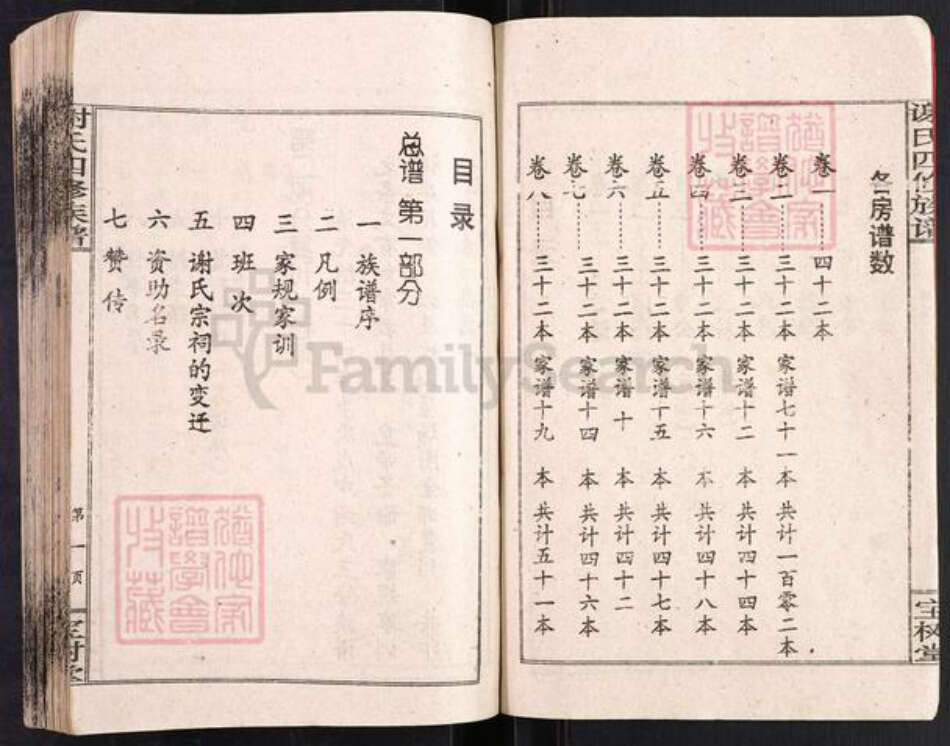 谢氏四修族谱
宝树堂
各房谱数
卷一………四十二本
卷二………三十二本 家谱七十一本 共计一百零二本
卷三………三十二本 家谱十二 本 共计四十四本
卷四………三十二本 家谱十六 本 共计四十八本
卷五………三十二本 家谱十五 本 共计四十七本
卷六………三十二本 家谱 十 本 共计四十二
卷七………三十二本 家谱十四 本 共计四十六本
卷八………三十二本 家谱十九 本 共计五十一本
目录
总谱 第一部分
一 族谱序
二 凡例
三 家规家训
四 班次
五 谢氏宗祠的变迁
六 资助名录
七 赞传
谢氏四修族谱
第一页
宝树堂
FamilySearch